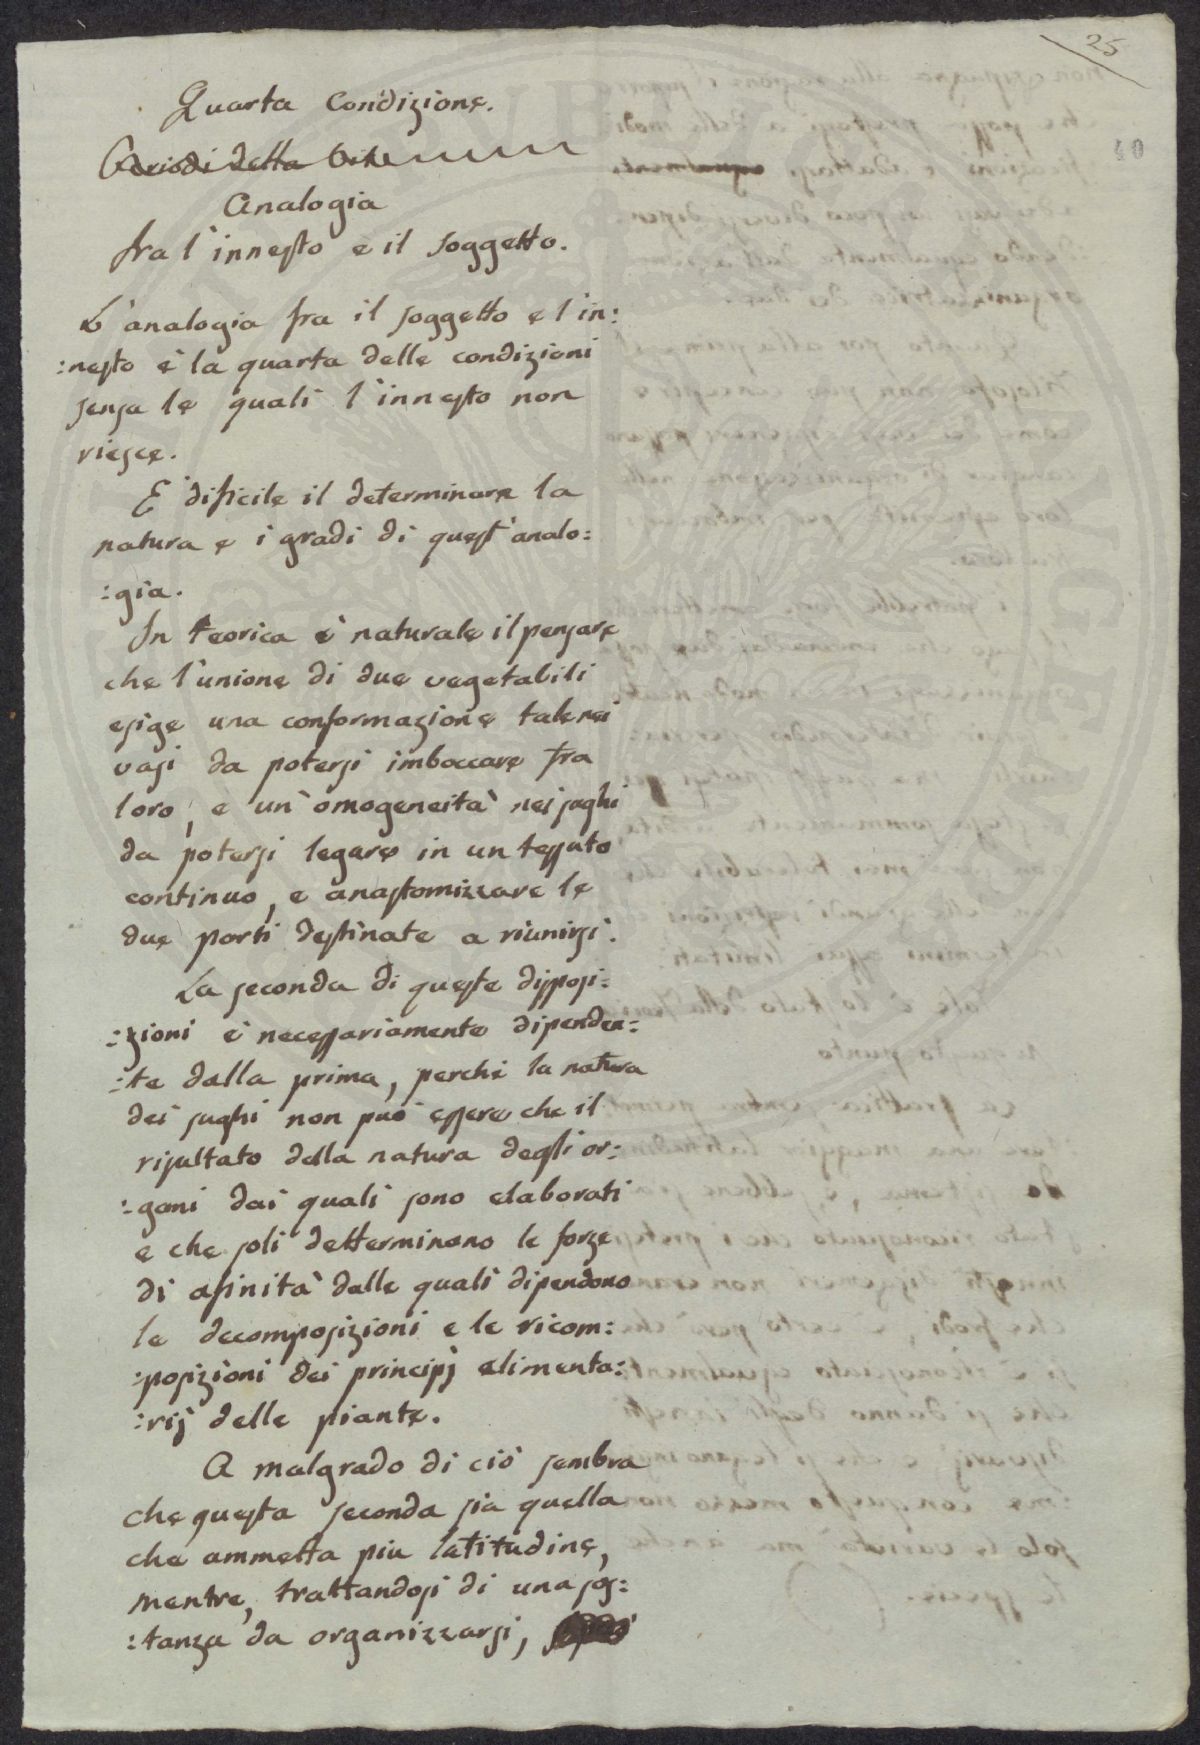 25
40
Quarta Condizione.
Periodi della Vite
Analogia
fra l'innesto e il soggetto.
L'analogia fra il soggetto e l'in:
:nesto è la quarta delle condizioni
senza le quali l'innesto non
riesce.
E' dificile il determinare la
natura e i gradi di quest'analo:
:gia.
In teorica è naturale il pensare
che l'unione di due vegetabili
esige una conformazione tale nei
vasi da potersi imboccare fra
loro, e un'omogeneità nei sughi
da potersi legare in un tessuto
continuo, e anastomizzare le
due parti destinate a riunirsi.
La seconda di queste disposi:
:zioni è necessariamente dipenden:
:te dalla prima, perchè la natura
dei sughi non può essere che il
risultato della natura degli or:
:gani dai quali sono elaborati
e che soli detterminano le forze
di afinità dalle quali dipendono
le decomposizioni e le ricom:
:posizioni dei principj alimenta:
:rij delle piante.
A malgrado di ciò sembra
che questa seconda sia quella
che ammetta piu latitudine,
mentre, trattandosi di una sos:
:tanza da organizzarsi,